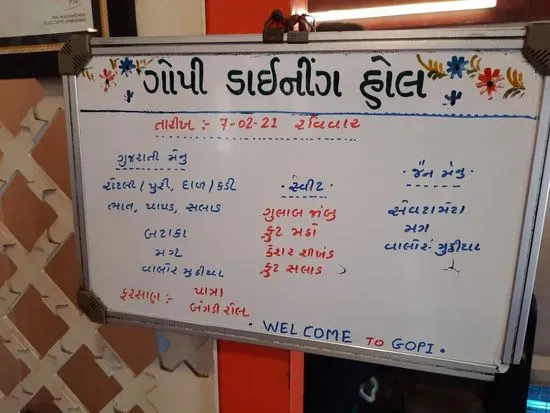 ગોપી ડાઈનીંગ હોલ
તારીખ :- 7-02-21 રવિવાર
ગુજરાતી મેનુ
રોટલી / પુરી, દાળ / કઢી
ભાત, પાપડ, સલાડ
બટાકા
મગ
વાલોર મુઠીયા
ફરસાણ :- પાત્રા
બંગડી રોલ
સ્વીટ
ગુલાબ જાંબુ
ફ્રુટ મઠો
કેશર શીખંડ
ફ્રુટ સલાડ
જૈન મેનુ
સેવટામેટા
મગ
વાલોર મુઠીયા
WELCOME TO GOPI.